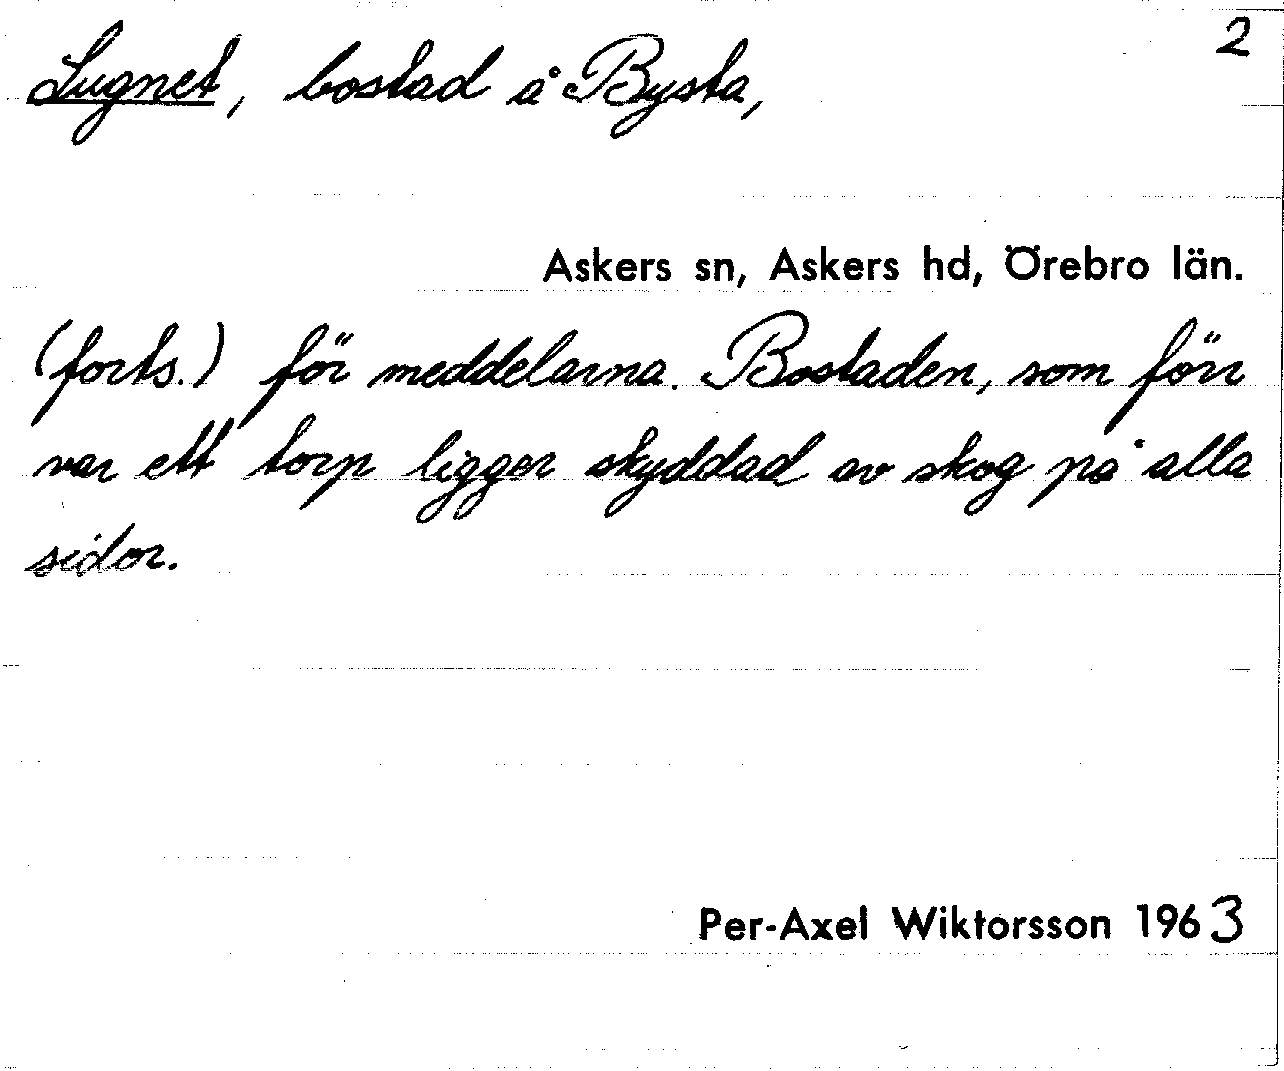 2
Lugnet, bostad å Bysta,
Askers sn, Askers hd, Örebro län.
(forts.) för meddelarna. Bostaden, som förr
var ett torp ligger skyddad av skog på alla
sidor.
Per-Axel Wiktorsson 1963